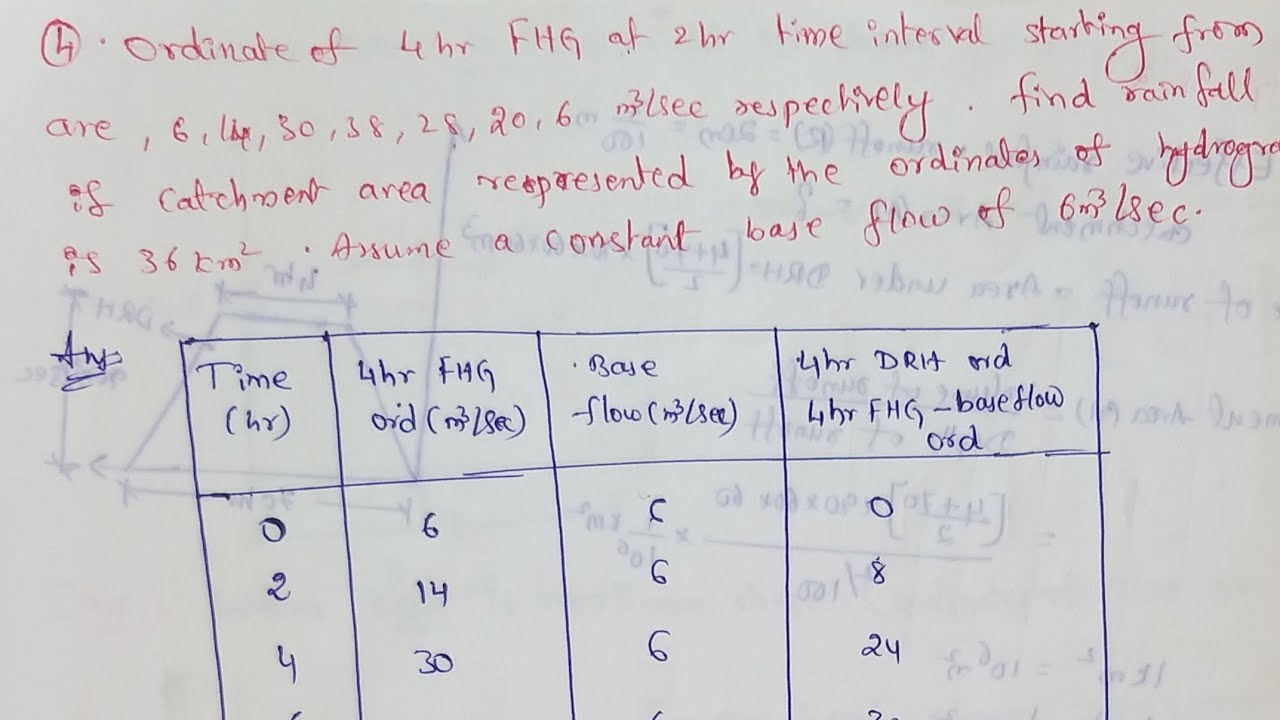 ④. Ordinate of 4hr FHG at 2hr time interval starting from
are, 6, 14, 30, 38, 28, 20, 6 m³/sec respectively. find rainfall
if catchment area respresented by the ordinates of hydrogra
is 36 km². Assume a constant base flow of 6m³/sec.
Ans
Time (hr) 4hr FHG ord (m³/sec) Base flow (m³/sec) 4hr DRH ord 4hr FHG - baseflow ord
0 6 6 0
2 14 6 8
4 30 6 24